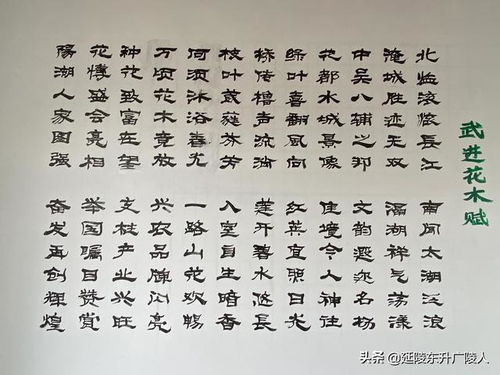 武进花木赋
北临滚滚長江
南闻太湖泛浪
淹城胜迹无双
滆湖祥气荡漾
中吴八辅之邦
文韵遐迩名扬
花都水城景像
佳境令人神往
绿叶喜翻风向
红英宜照日光
标传橹声流淌
莲开碧水悠長
枝叶葳蕤芬芳
入室自生暗香
何须沐浴春光
一路山花欢畅
万顷花木竞放
兴农品牌闪亮
种花致富在望
支柱产业兴旺
花博盛会亮相
举国瞩目赞赏
陽湖人家图强
奋发再创辉煌
头条 @延陵东升广陵人